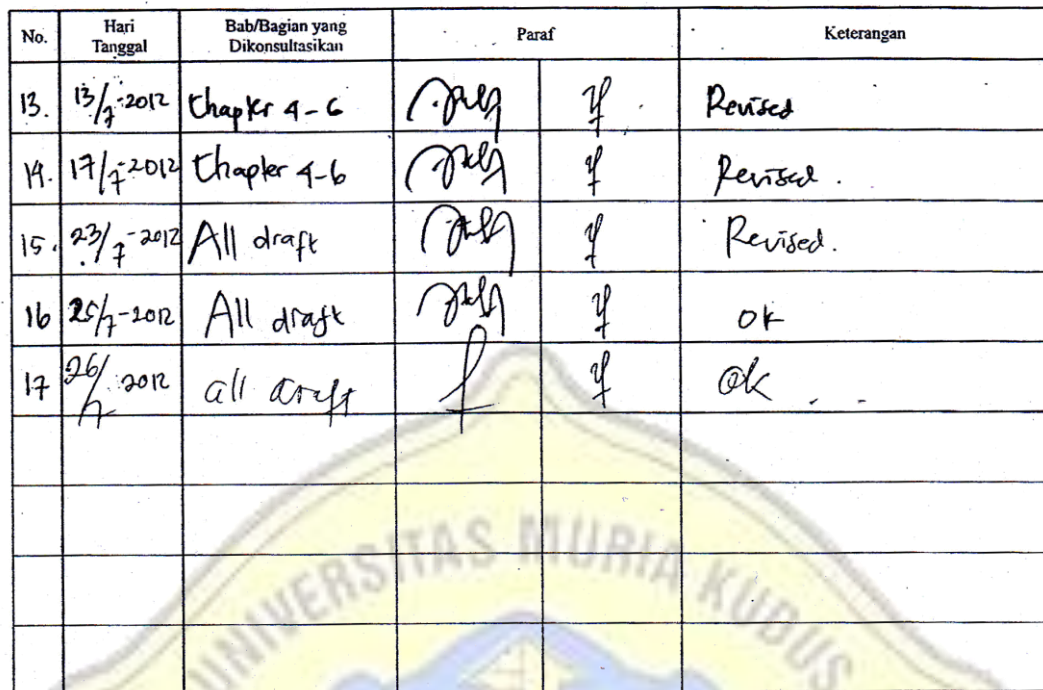 No. Hari Tanggal Bab/Bagian yang Dikonsultasikan Paraf Keterangan
13. 13/7-2012 Chapter 4-6 Revised
14. 17/7-2012 Chapter 4-6 Revised.
15. 23/7-2012 All draft Revised.
16 25/7-2012 All draft ok
17 26/7 2012 all draft Ok
UNIVERSITAS MURIA KUDUS